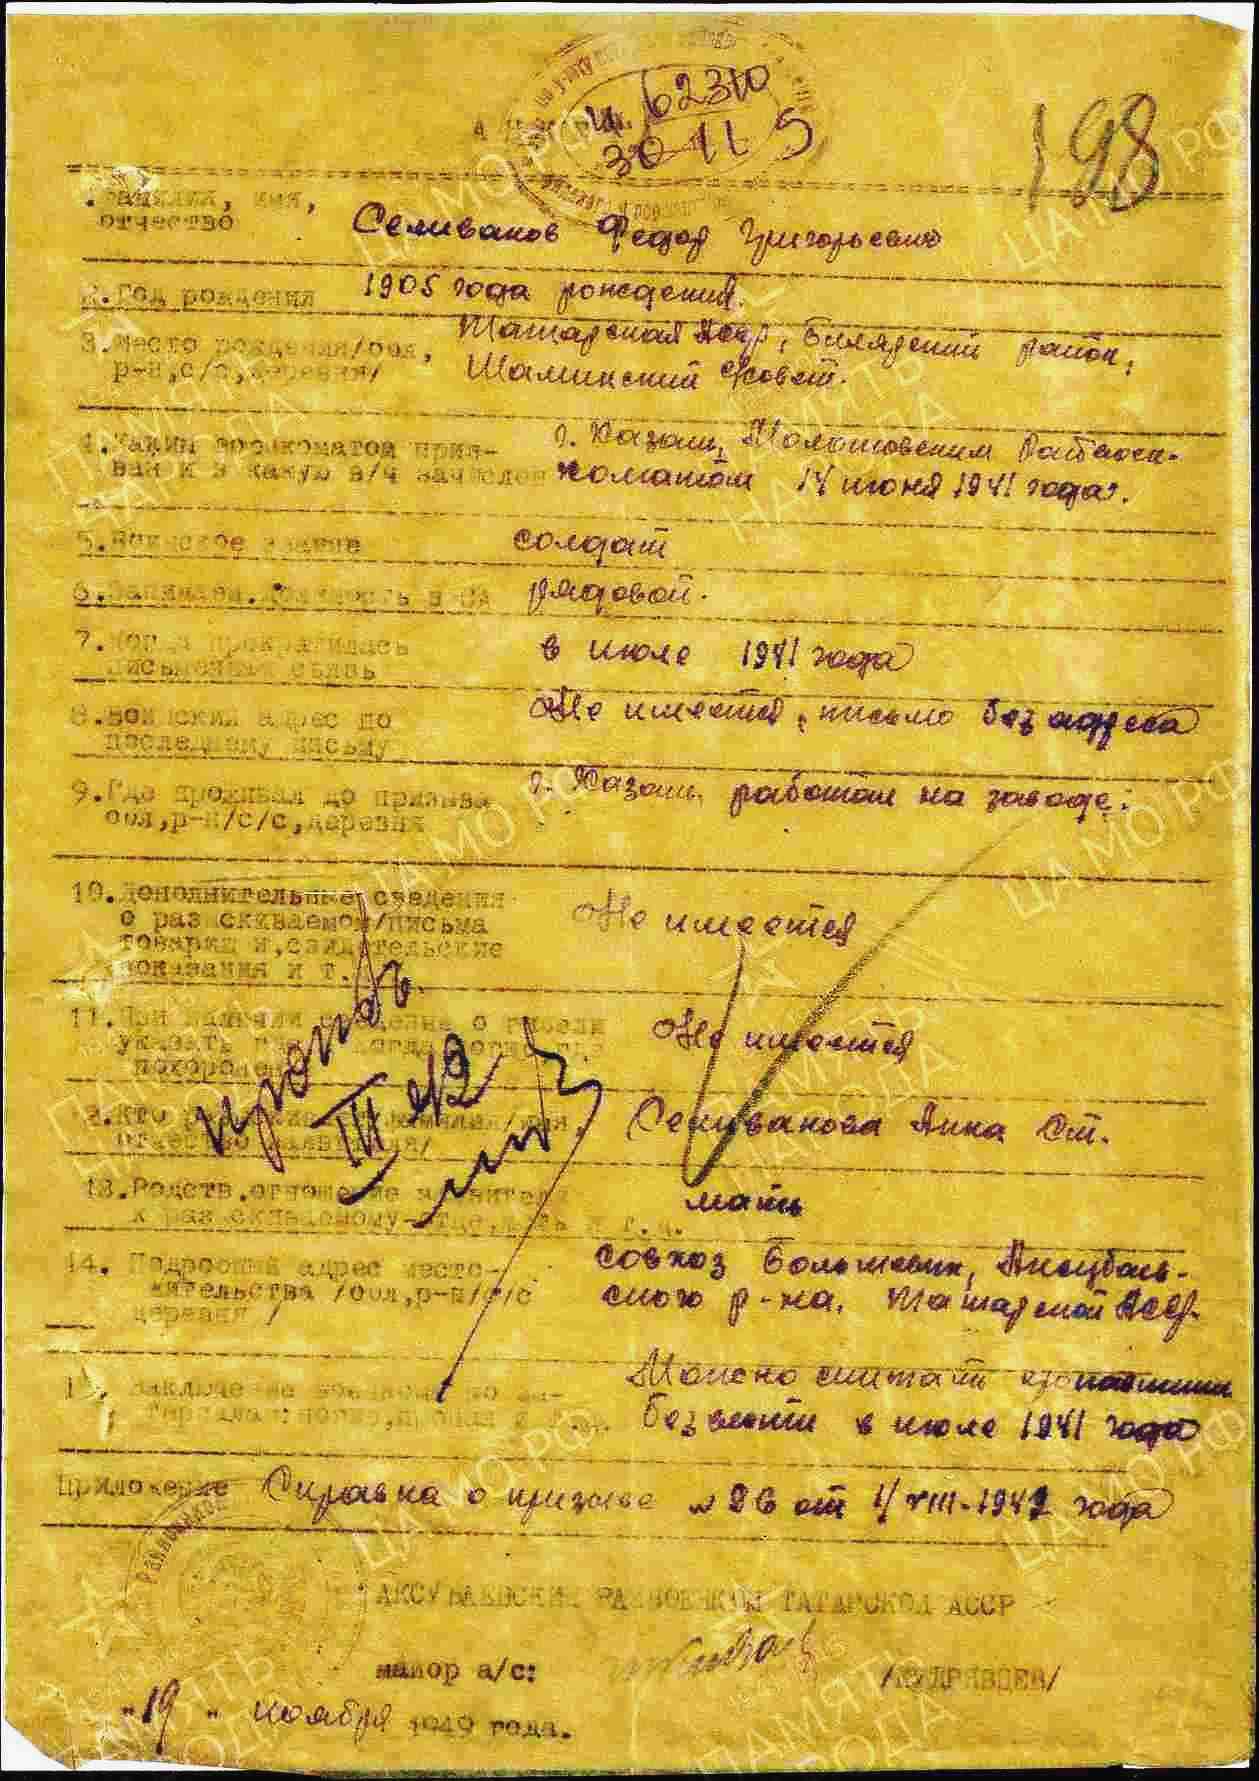 вх. 62310
30 11 5
198
1. Фамилия, имя,
отчество
Селиванов Федор Григорьевич
2. Год рождения
1905 года рождения.
3. Место рождения/обл,
р-н,с/с,деревня/
Татарская АССР, Билярский район,
Шаминский совет.
4. Каким военкоматом приз-
ван и в какую в/ч зачислен
г. Казань, Молотовским Райвоен-
коматом 14 июня 1941 года.
5. Воинское звание
солдат
6. Занимаем. должность в СА
рядовой.
7. Когда прекратилась
письменная связь
в июле 1941 года
8. Воинский адрес по
последнему письму
Не имеется, письмо без адреса
9. Где проживал до призыва
обл,р-н/с/с,деревня
г. Казань, работал на заводе.
10. Дополнительные сведения
о разыскиваемом/письма
товарищей,свидетельские
показания и т.
Не имеется
11. При наличии сведений о гибели
указать где, когда погиб, где
похоронен
Не имеется
пропал б.
III 42
12. Кто разыскивает /фамилия/имя,
отчество заявителя/
Селиванова Анна Ст.
13. Родств.отношение заявителя
к разыскиваемому-отец,мать и т.д.
мать
14. Подробный адрес место-
жительства /обл,р-н/с/с
деревня/
совхоз Большевик, Аксубаев-
ского р-на, Татарской АССР.
15. Заключение военкома по ма-
териалам:погиб,пропал и т.д.
Можно считать пропавшим
без вести в июле 1941 года
Приложение Справка о призыве №26 от 1/VIII-1949 года
АКСУБАЕВСКИЙ РАЙВОЕНКОМ ТАТАРСКОЙ АССР
майор а/с: /КУДРЯВЦЕВ/
"19" ноября 1949 года.
ПАМЯТЬ НАРОДА
ЦАМО РФ